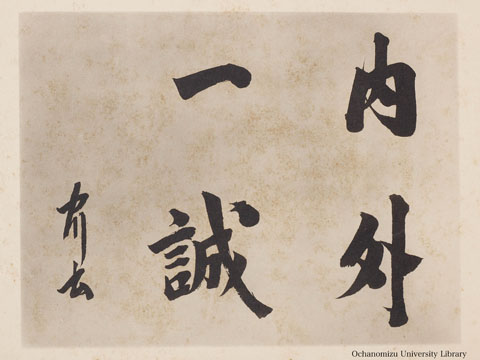 内外
一誠
Ochanomizu University Library